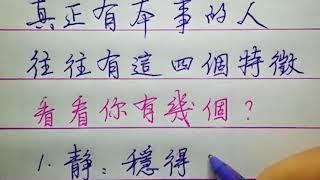 真正有本事的人
往往有這四個特徵
看看你有幾個？
1.靜：穩得